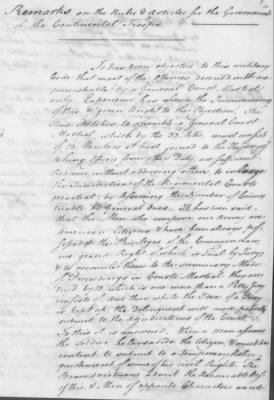 Remarks on the Rules & Articles for the Government
of the Continental Troops.
It has been objected to this military
Code that most of the Offences dealt with are
punishable by a General Court Martial
only. Experience has shewn the Inconvenience
of this & given Weight to the Objection. The
Time
Martial, which by the 33 Artic. must consist
of 13 Members at least joined to the Inconvenience of
taking Officers from their Duty are sufficient
Reasons, without adducing others to enlarge
the Jurisdiction of the Regimental Courts
martial by lessening the Number of Crimes
triable by General ones. It has been said
that the Men who compose our Army are
American Citizens & have been always possessed
of the Privileges of the Common Law,
one grand Right of which is trial by Jury
to reconcile them to the summary Mode
of Proceeding in Courts Martial they are
tried by 13 which is one more than a Petty Jury
consists of and thus while the Idea of a Jury
is kept up the Delinquent will more patiently
submit to the Adjudications of the Court
To this it is answered. When a man assumes
the Soldier he lays aside the Citizen, & must be
content to submit to a temporary relinquishment
of some of his civil Rights. The
admit the Reasonableness of
this, & Men of opposite Characters